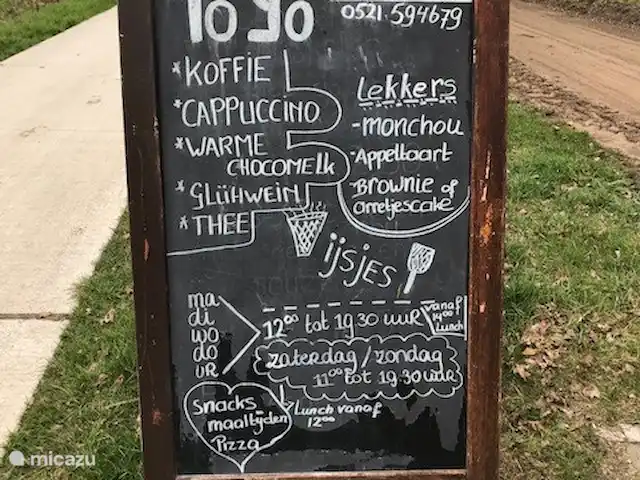 To go
0521-594679
*KOFFIE
*CAPPUCCINO
*WARME
CHOCOMELK
*GLÜHWEIN
*THEE
Lekkers
-MONCHOU
-Appeltaart
-Brownie of
arretjescake
ijsjes
ma
di
wo
do
VR
12⁰⁰ tot 19.30 uur
vanaf
14⁰⁰
Lunch
zaterdag/zondag
11⁰⁰ tot 19.30 uur
Lunch vanaf
12⁰⁰
Snacks
maaltijden
Pizza
micazu